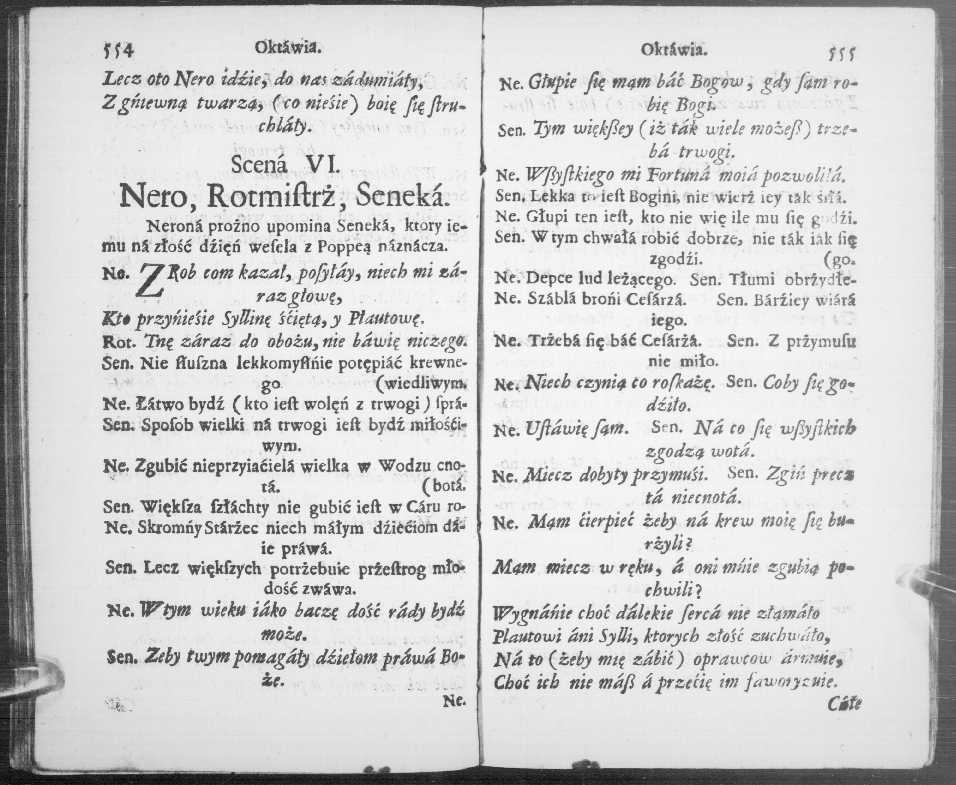 554 Oktáwia.
Lecz oto Nero idźie, do nas zádumiáły,
Z gńiewną twarzą, (co nieśie) boię ſię ſtru-
chláły.
Scená VI.
Nero, Rotmiſtrż, Seneká.
Neroná proźno upomina Seneká, ktory ie-
mu ná złość dźięń weſela z Poppeą náznácza.
Ne. ZRob com kazał, poſyłáy, niech mi zá-
raz głowę,
Kto przyńieśie Syllinę śćiętą, y Płautowę.
Rot. Tnę záraz do obożu, nie báwię niczego.
Sen. Nie ſłuſzna lekkomyſłńie potępiáć krewne-
go. (wiedliwym.
Ne. Łátwo bydź (kto ieſt wolęń z trwogi) ſprá-
Sen. Spoſob wielki ná trwogi ieſt bydź miłośći-
wym.
Ne. Zgubić nieprzyiaćielá wielka w Wodzu cno-
tá. (botá.
Sen. Więkſza ſzłáchty nie gubić ieſt w Cáru ro-
Ne. Skromńy Stárżec niech máłym dźiećiom dá-
ie práwá.
Sen. Lecz więkſzych potrżebuie prżeſtrog mło-
dość zwáwa.
Ne. W tym wieku iáko baczę dość rády bydź
może.
Sen. Zeby twym pomagáły dźiełom práwá Bo-
że.
Ne.
Oktáwia. 555
Ne. Głupie ſię mąm báć Bogow, gdy ſąm ro-
bię Bogi.
Sen. Tym więkßey (iż ták wiele możeß) trze-
bá trwogi.
Ne. Wßyſtkiego mi Fortuná moiá pozwolilá.
Sen. Lekka to ieſt Bogini, nie wierż iey ták śiłá.
Ne. Głupi ten ieſt, kto nie wię ile mu ſię godźi.
Sen. W tym chwałá robić dobrze, nie ták iák ſię
zgodźi. (go.
Ne. Depce lud leżącego. Sen. Tłumi obrżydłe-
Ne. Száblá brońi Ceſárzá. Sen. Bárźiey wiárá
iego.
Ne. Trżebá ſię báć Ceſárżá. Sen. Z prżymuſu
nie miło.
Ne. Niech czynią to roſkażę. Sen. Coby ſię go-
dźiło.
Ne. Uſtáwię ſąm. Sen. Ná co ſię wßyſtkich
zgodzą wotá.
Ne. Miecz dobyty przymuśi. Sen. Zgiń precz
tá niecnotá.
Ne. Mąm ćierpieć żeby ná krew moię ſię bu-
rżyli?
Mąm miecz w ręku, á oni mńie zgubią po-
chwili?
Wygnáńie choć dálekie ſercá nie złąmáło
Plautowi áni Sylli, ktorych złość zuchwáło,
Ná to (żeby mię zábić) oprawcow ármuie,
Choć ich nie máß á przećię im faworyzuie.
Cáłe